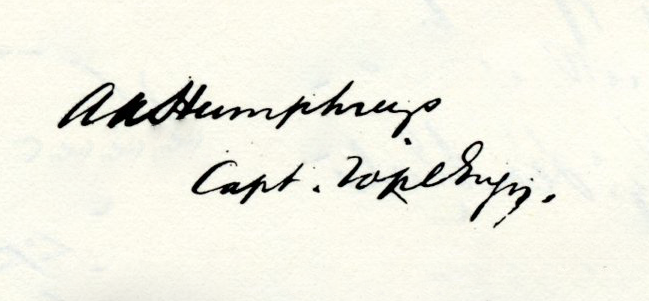 AAHumphreys
Capt. Topl Engrs.